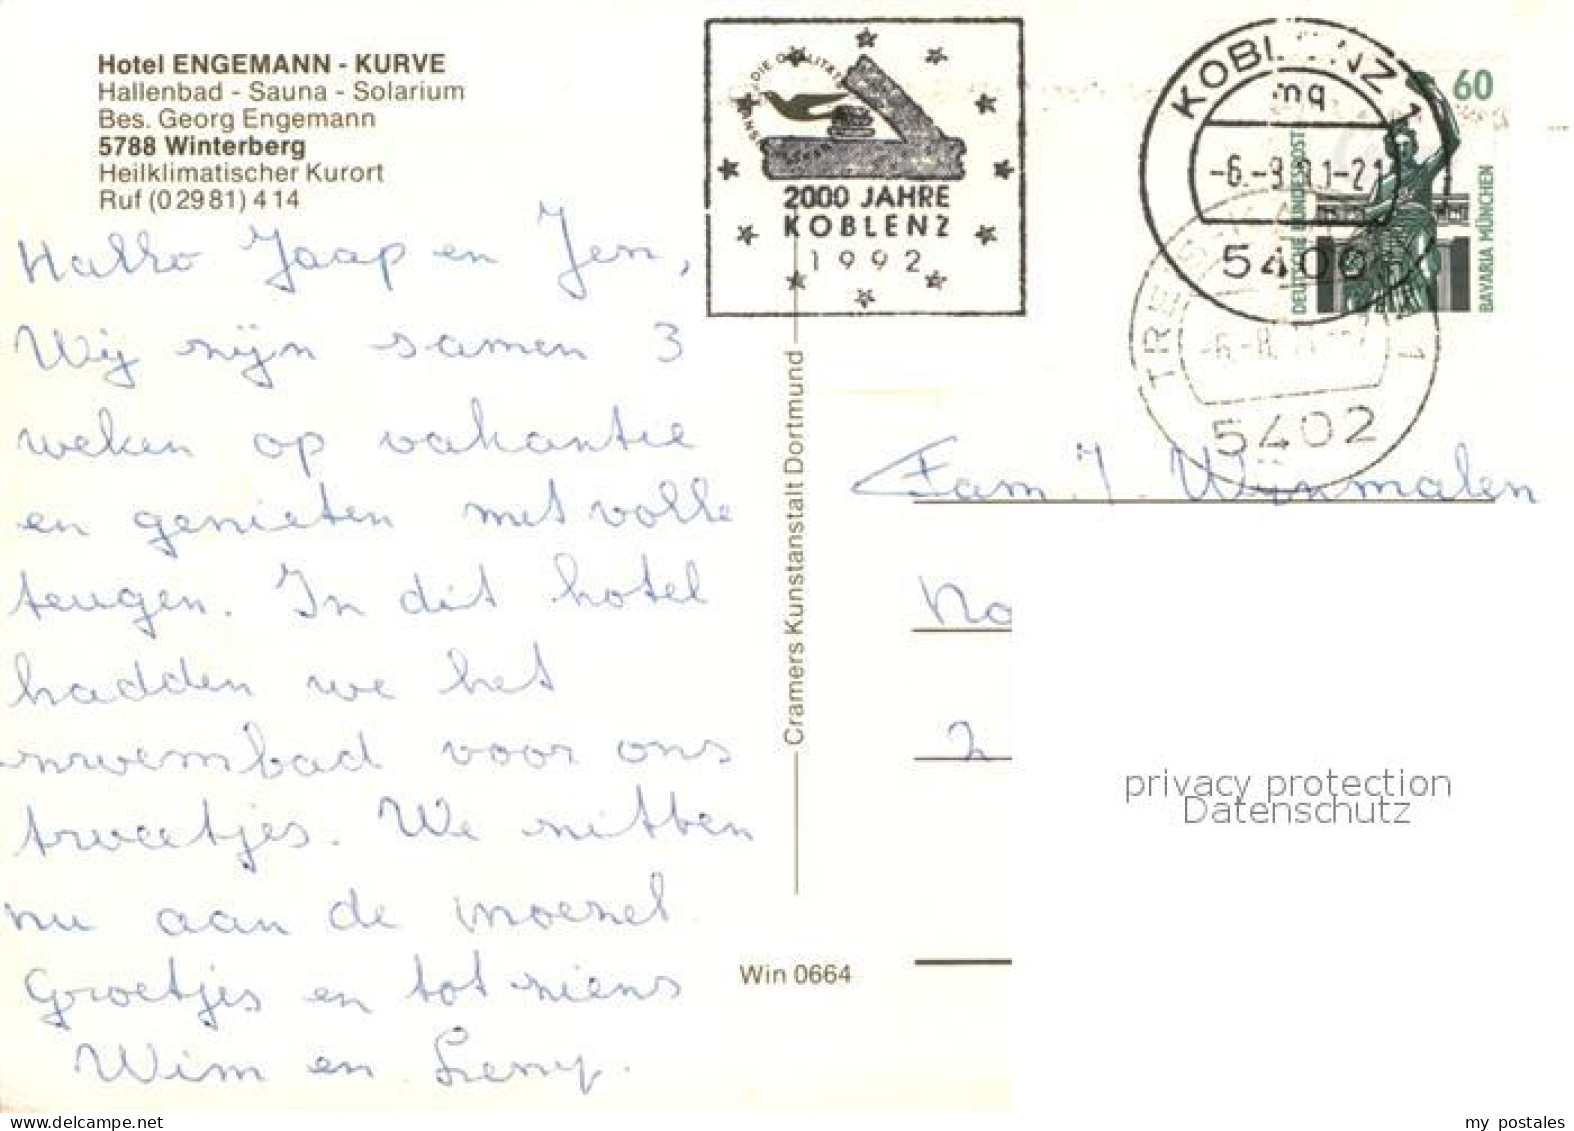 Hotel ENGEMANN - KURVE
Hallenbad - Sauna - Solarium
Bes. Georg Engemann
5788 Winterberg
Heilklimatischer Kurort
Ruf (0 29 81) 4 14
Hallo Jaap en Jen,
Wij zijn samen 3
weken op vakantie
en genieten met volle
teugen. In dit hotel
hadden we het
zwembad voor ons
tweetjes. We zitten
nu aan de moezel.
Groetjes en tot ziens
Wim en Leny.
Cramers Kunstanstalt Dortmund
Win 0664
DIE
2000 JAHRE
KOBLENZ
1992
KOBLENZ 1
mq
5400
5402
60
DEUTSCHE BUNDESPOST
BAVARIA MÜNCHEN
Fam. J. Wijnmalen
No
2
privacy protection
Datenschutz
delcampe.net
my postales